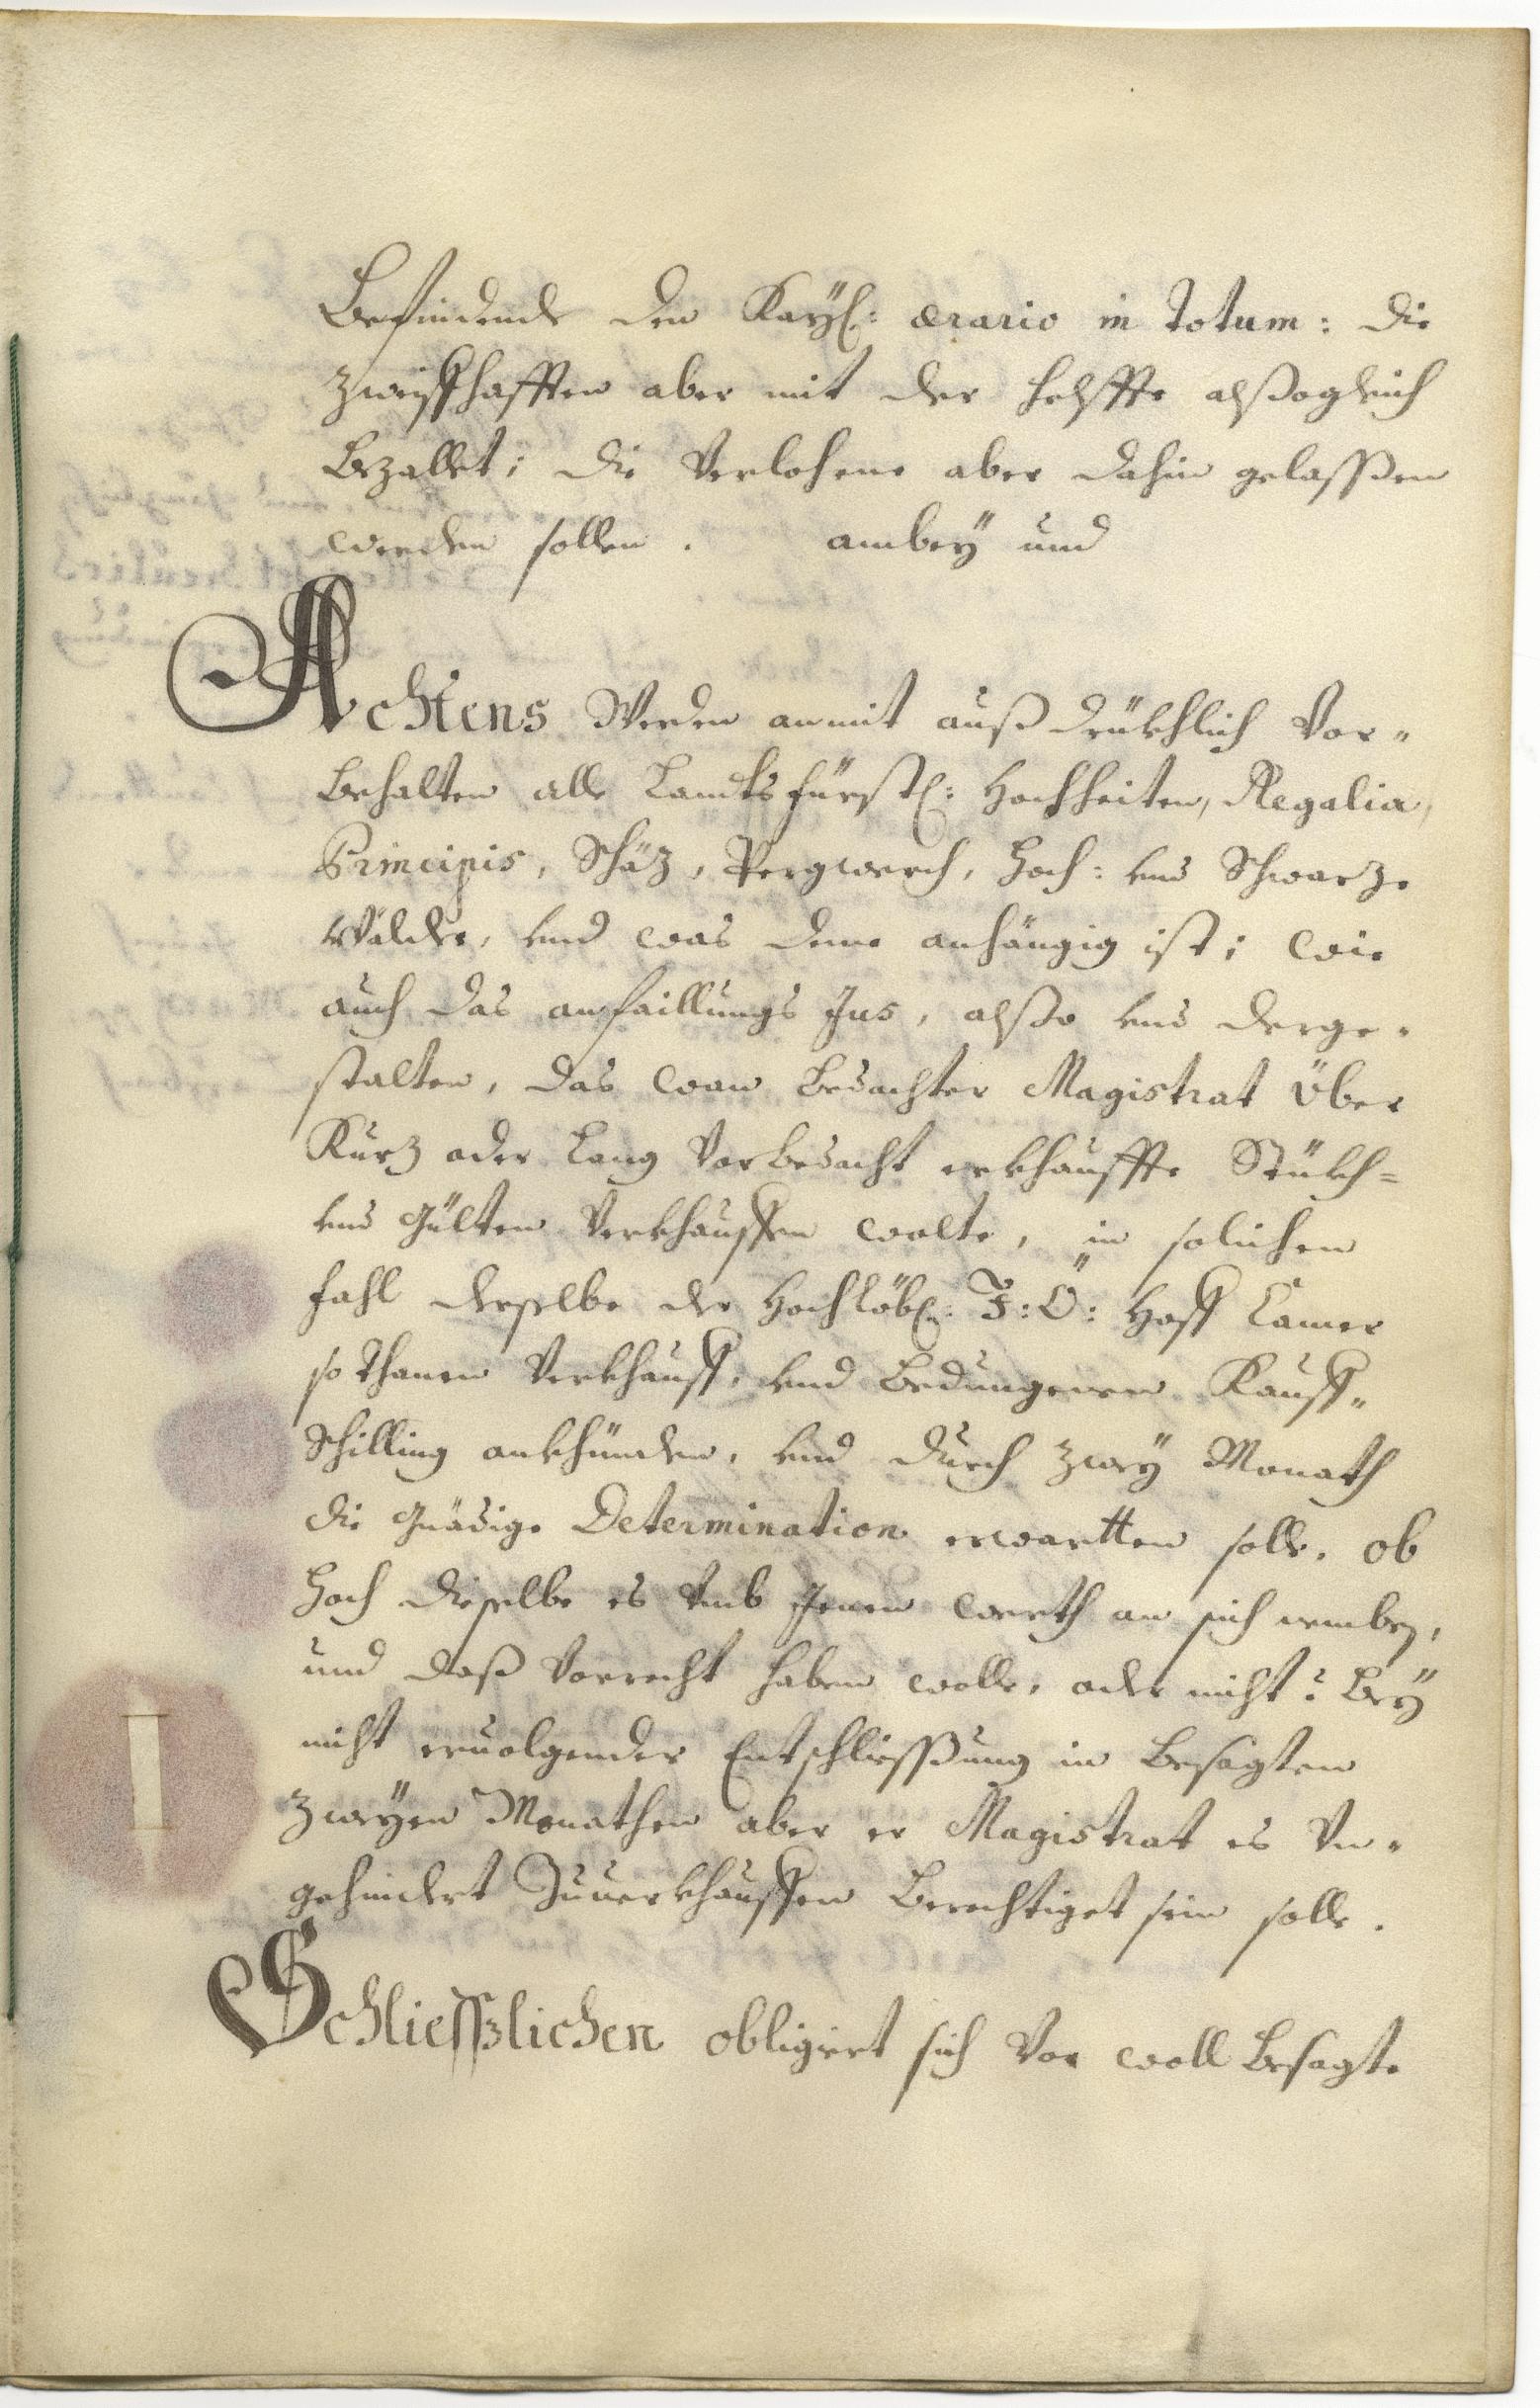 Befindende den Kayl: ærario in totum: die
zweiffhafften aber mit der helffte alßogleich
bezallet; die Verlohene aber dahin gelasßen
werden sollen. ambey und
Achtens Werden anmit außdrükhlich Vor-
behalten alle Landtsfürstl: Hochheiten, Regalia,
Principis, Schäz, Pergwerch, Hoch: vnd Schwarze
Wälder, vnd was deme anhängig ist; wie
auch das anfaillungs Jus, alßo vnd derge-
stalten, das wan bedachter Magistrat über
Kurz oder lang Vorbedacht erkhauffte Stükh-
vnd Gülten Verkhauffen wolte, in solichen
fahl derselbe der Hochlöbl: I:Ö: Hoff Camer
so thanen Verkhauff, vnd bedungenen Kauff-
Schilling ankhünden, vnd durch zwey Monath
die Gnädige Determination erwartten solle, ob
Hoch dieselbe es Vmb Jenen werth an sich nemben,
und daß Vorrecht haben wolle, oder nicht? Bey
nicht ervolgender Entschliesßung in besagten
zweyen Monathen aber er Magistrat es Vn-
gehindert Zuuerkhauffen berechtiget sein solle.
Schliesßlichen obligiert sich Vor woll besagte